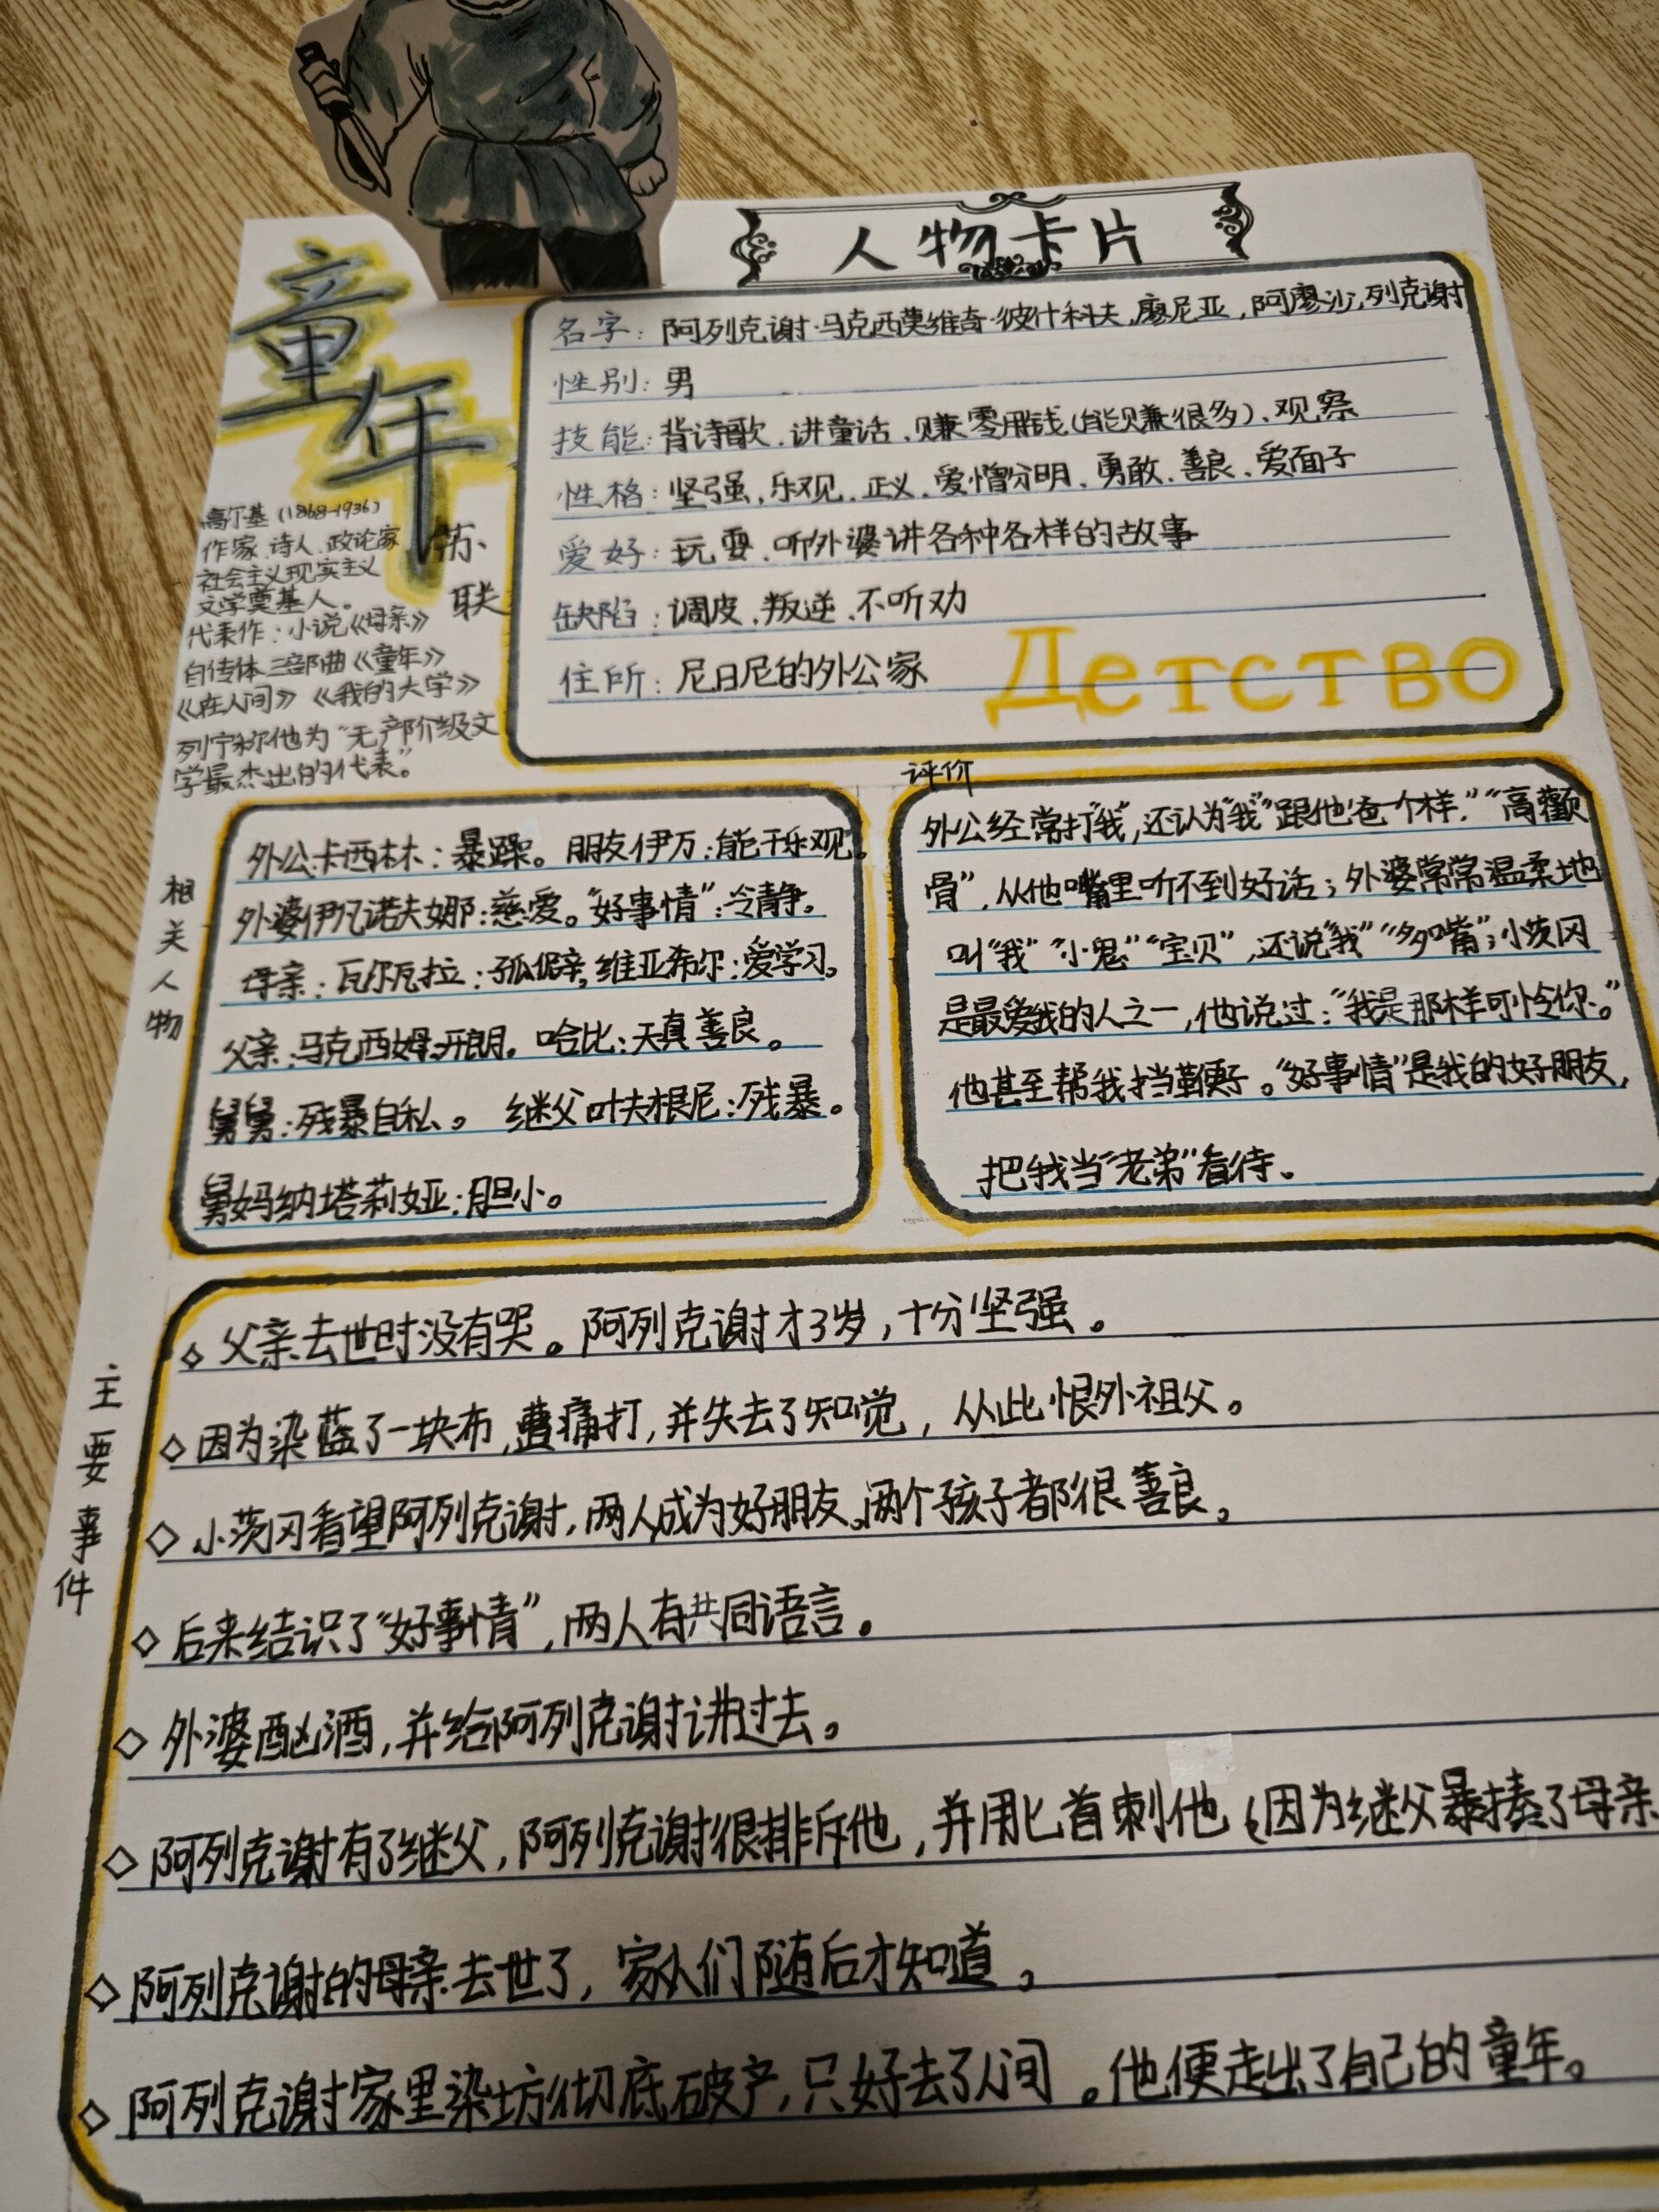 人物卡片
童年
苏联
高尔基(1868-1936)
作家、诗人、政论家
社会主义现实主义
文学奠基人。
代表作：小说《母亲》
自传体三部曲《童年》
《在人间》《我的大学》
列宁称他为“无产阶级文
学最杰出的代表”。
名字：阿列克谢·马克西莫维奇·彼什科夫，廖尼亚，阿廖沙，列克谢
性别：男
技能：背诗歌、讲童话、赚零用钱(能赚很多)、观察
性格：坚强、乐观、正义、爱憎分明、勇敢、善良、爱面子
爱好：玩耍、听外婆讲各种各样的故事
缺陷：调皮、叛逆、不听劝
住所：尼日尼的外公家
Детство
相关人物
外公卡西林：暴躁。朋友伊万：能干乐观。
外婆伊凡诺夫娜：慈爱。“好事情”：冷静。
母亲：瓦尔瓦拉：孤僻。维亚希尔：爱学习。
父亲：马克西姆：开朗。哈比：天真善良。
舅舅：残暴自私。继父叶夫根尼：残暴。
舅妈纳塔莉娅：胆小。
评价
外公经常打“我”，还认为“我”“跟他爸一个样”“高颧
骨”，从他嘴里听不到好话；外婆常常温柔地
叫“我”“小鬼”“宝贝”，还说“我”“多嘴”；小茨冈
是最爱我的人之一，他说过：“我是那样可怜你。”
他甚至帮我挡鞭子。“好事情”是我的好朋友，
把我当“老弟”看待。
主要事件
◇父亲去世时没有哭。阿列克谢才3岁，十分坚强。
◇因为染蓝了一块布，遭痛打，并失去了知觉，从此恨外祖父。
◇小茨冈看望阿列克谢，两人成为好朋友。两个孩子都很善良。
◇后来结识了“好事情”，两人有共同语言。
◇外婆酗酒，并给阿列克谢讲过去。
◇阿列克谢有了继父，阿列克谢很排斥他，并用匕首刺他（因为继父暴揍了母亲
◇阿列克谢的母亲去世了，家人们随后才知道。
◇阿列克谢家里染坊彻底破产，只好去了人间。他便走出了自己的童年。